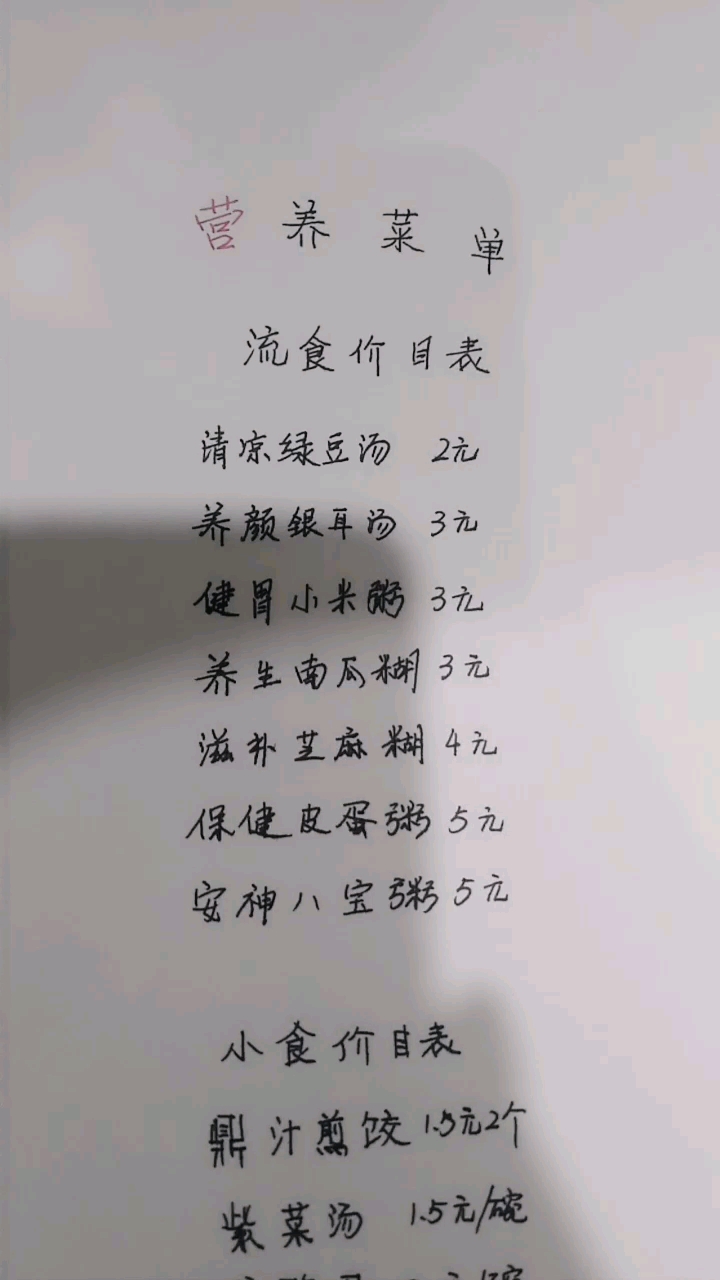 营养菜单
流食价目表
清凉绿豆汤 2元
养颜银耳汤 3元
健胃小米粥 3元
养生南瓜糊 3元
滋补芝麻糊 4元
保健皮蛋粥 5元
安神八宝粥 5元
小食价目表
鼎汁煎饺 1.5元2个
紫菜汤 1.5元/碗